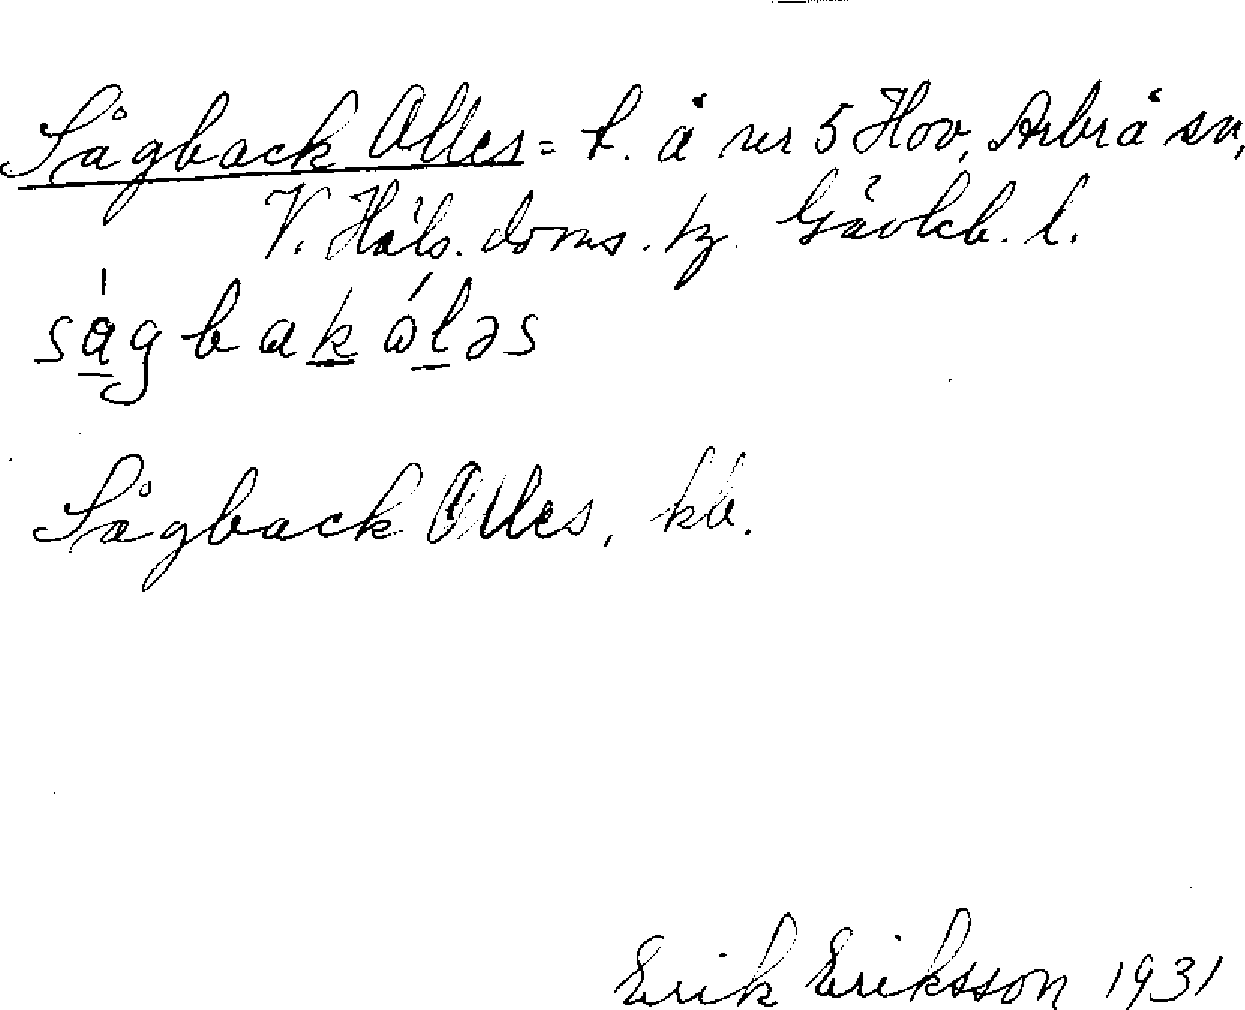 Sågback Olles = t. å nr 5 Hov, Arbrå sn,
V. Häls. doms. tg. Gävleb. l.
sågbakóləs
Sågback Olles, kb.
Erik Eriksson 1931